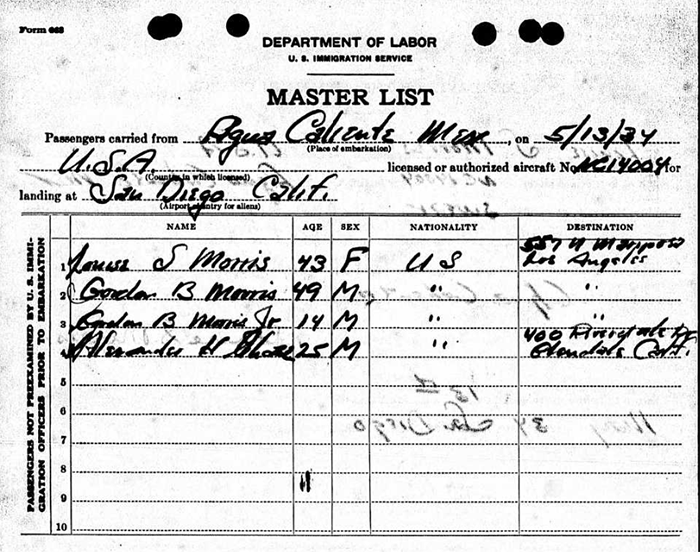 Form 663
DEPARTMENT OF LABOR
U. S. IMMIGRATION SERVICE
MASTER LIST
Passengers carried from Agua Caliente Mex, on 5/13/34
(Place of embarkation)
U.S.A. licensed or authorized aircraft No. NC14004 for
(Country in which licensed)
landing at San Diego Calif.
(Airport of entry for aliens)
PASSENGERS NOT PREEXAMINED BY U. S. IMMI-
GRATION OFFICERS PRIOR TO EMBARKATION
NAME AGE SEX NATIONALITY DESTINATION
557 N Mariposa
1 Louise S Morris 43 F US Los Angeles
2 Gordon B Morris 49 M " "
3 Gordon B Morris Jr 14 M " "
400 Riverdale Dr
4 Alexander H 25 M " Glendale Calif.
5
6
7
8
9
10
13
May 34 San Diego